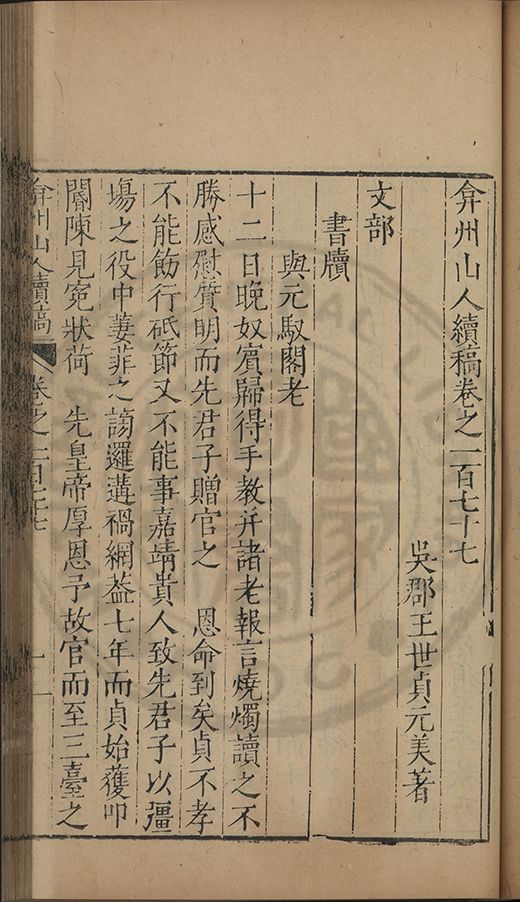 弇州山人續稿卷之一百七十七
吳郡王世貞元美著
文部
書牘
與元馭閣老
十二日晚奴賓歸得手教并諸老報言燒燭讀之不
勝感慰質明而先君子贈官之 恩命到矣貞不孝
不能飭行砥節又不能事嘉靖貴人致先君子以疆
場之役中萋菲之謗邏遘禍網葢七年而貞始獲叩
閽陳見寃狀荷 先皇帝厚恩予故官而至三臺之
弇州山人續稿 卷之一百七十七 一